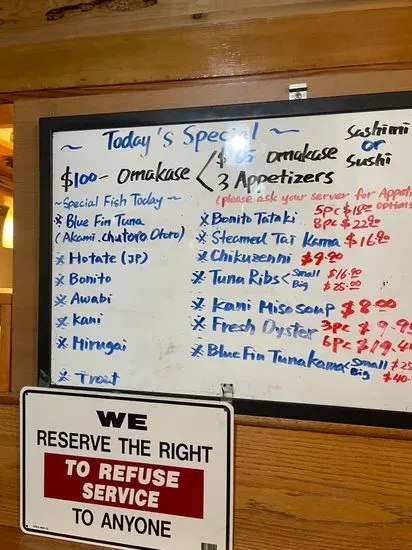 ~ Today's Special ~
$100- Omakase < $65 Omakase
3 Appetizers
Sashimi
or
Sushi
~Special Fish Today~
* Blue Fin Tuna
(Akami, chutoro Otoro)
* Hotate (JP)
* Bonito
* Awabi
* Kani
* Mirugai
* Trout
(please ask your server for Appeti
options)
* Bonito Tataki 5pc $18.00
8pc $22.90
* Steamed Tai Kama $16.90
* Chikuzenni $9.90
* Tuna Ribs < Small $16.90
Big $25.00
* Kani Miso soup $8.00
* Fresh Oyster 3pc $9.9
6pc $19.4
* Blue Fin Tuna Kama < Small $25
Big $40
WE
RESERVE THE RIGHT
TO REFUSE
SERVICE
TO ANYONE